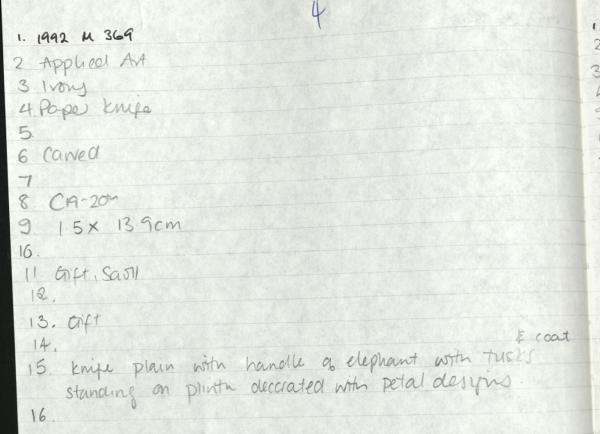 4
1. 1992 M 369
2 Applied Art
3 Ivory
4. Paper Knife
5
6 Carved
7
8 C19-20th
9 1 5 x 13 9cm
10.
11 Gift.
12.
13. Gift
14.
& coat
15 Knife plain with handle of elephant with tusks
standing on plinth decorated with petal designs.
16